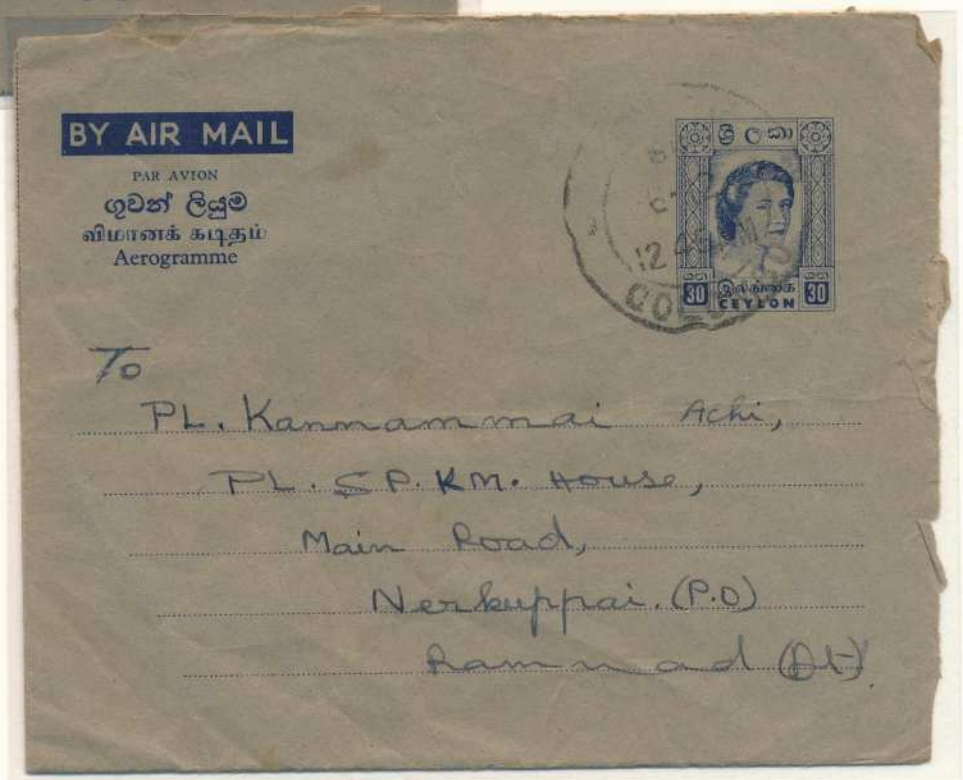 BY AIR MAIL
PAR AVION
ගුවන් ලියුම
விமானக் கடிதம்
Aerogramme
ශ්‍රී ලංකා
12 45 AM
30 இலங்கை 30
CEYLON
To
PL. Kannammai Achi,
PL. SP. KM. House,
Main Road,
Nerkuppai. (P.O)
Ramnad (Dt).